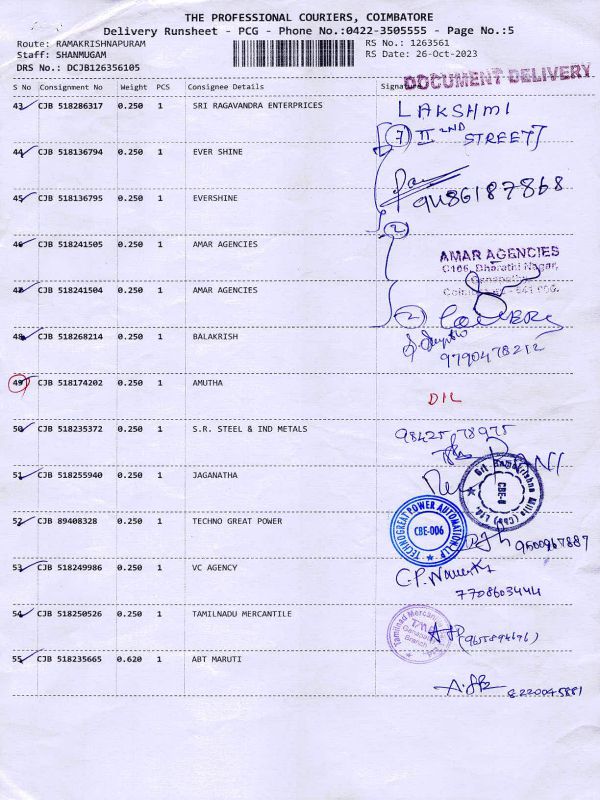 THE PROFESSIONAL COURIERS, COIMBATORE
Delivery Runsheet - PCG - Phone No.:0422-3505555 - Page No.:5
Route: RAMAKRISHNAPURAM
RS No.: 1263561
Staff: SHANMUGAM
RS Date: 26-Oct-2023
DRS No.: DCJB126356105
DOCUMENT DELIVERY
S No Consignment No Weight PCS Consignee Details Signature
43 CJB 518286317 0.250 1 SRI RAGAVANDRA ENTERPRICES
LAKSHMI
7 II 2ND STREET
44 CJB 518136794 0.250 1 EVER SHINE
9486187868
45 CJB 518136795 0.250 1 EVERSHINE
2
46 CJB 518241505 0.250 1 AMAR AGENCIES
AMAR AGENCIES
C106, Bharathi Nagar,
Ganapathy
47 CJB 518241504 0.250 1 AMAR AGENCIES
2
48 CJB 518268214 0.250 1 BALAKRISH
9790478212
49 CJB 518174202 0.250 1 AMUTHA
D/L
50 CJB 518235372 0.250 1 S.R. STEEL & IND METALS
98425 78975
51 CJB 518255940 0.250 1 JAGANATHA
Sri Ramakrishna Mills (CBE) Ltd.
CBE-6
52 CJB 89408328 0.250 1 TECHNO GREAT POWER
TECHNOGREAT POWER AUTOMATION LLP
CBE-006
9500967887
53 CJB 518249986 0.250 1 VC AGENCY
7708603444
54 CJB 518250526 0.250 1 TAMILNADU MERCANTILE
Tamilnad Mercantile
Ganapathy
Branch
55 CJB 518235665 0.620 1 ABT MARUTI
8220045881